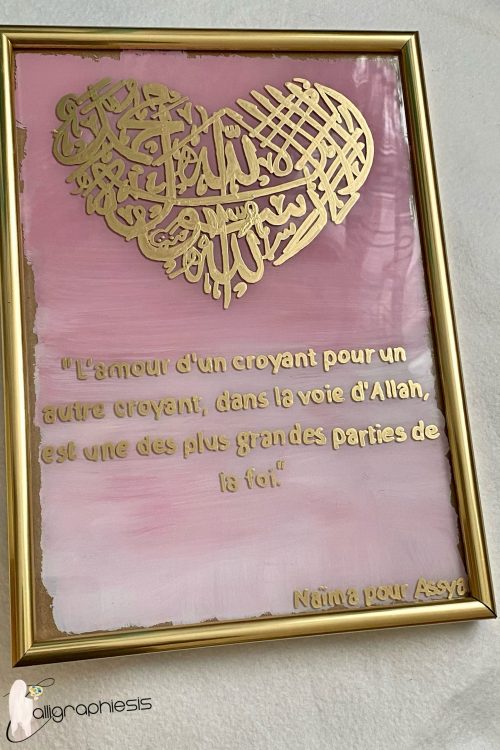 لا إله إلا الله محمد رسول الله
"L'amour d'un croyant pour un
autre croyant, dans la voie d'Allah,
est une des plus grandes parties de
la foi."
Naïma pour Assya
Calligraphiesis